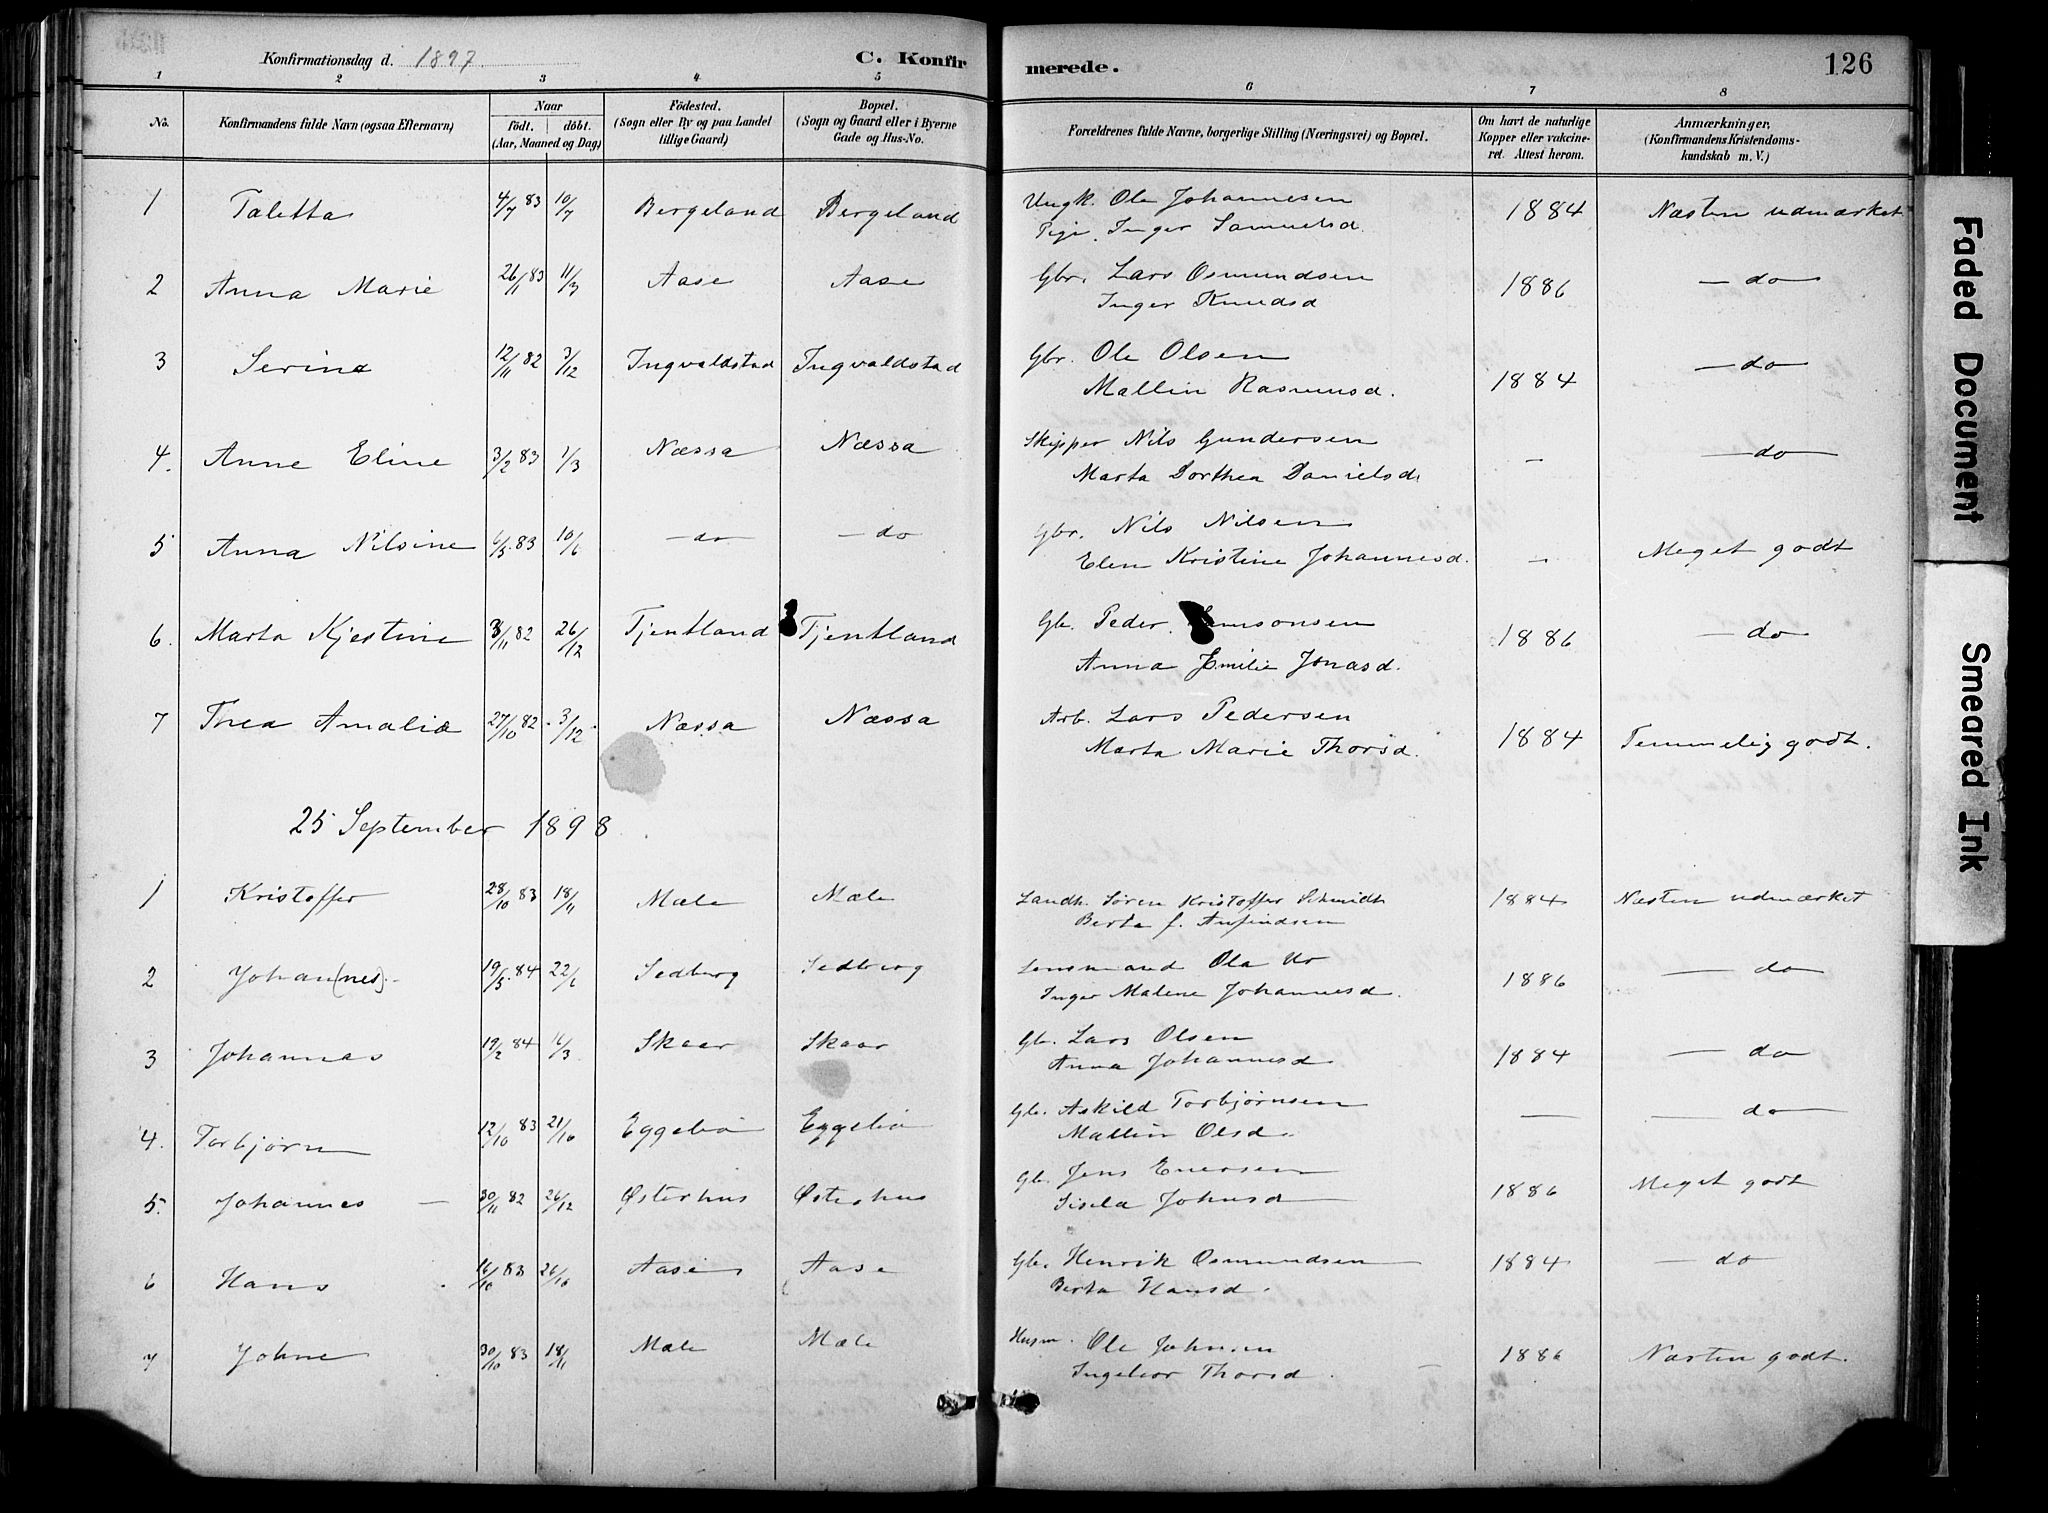 Konfirmationsdag d. 1897. C. Konfirmerede. 126
1 2 3 4 5 6 7 8
No. Konfirmandens fulde Navn (ogsaa Efternavn) Naar Födt. döbt. (Aar, Maaned og Dag) Födested. (Sogn eller By og paa Landet tillige Gaard) Bopæl. (Sogn og Gaard eller i Byerne Gade og Hus-No. Forældrenes fulde Navne, borgerlige Stilling (Næringsvei) og Bopæl. Om havt de naturlige Kopper eller vakcineret. Attest herom. Anmærkninger, (Konfirmandens Kristendomskundskab m. V.)
1 Taletta 4/7 83 10/7 Bergeland Bergeland Ungk. Ole Johannesen 1884 Næsten udmærket
Pige. Inger Samuelsd.
2 Anna Marie 26/1 83 11/3 Aase Aase Gbr. Lars Osmundsen 1886 — do —
Inger Knudsd
3 Serine 12/11 82 3/12 Ingvaldstad Ingvaldstad Gbr. Ole Olsen — do —
Mallin Rasmusd. 1884
4. Anne Eline 3/2 83 1/3 Næssa Næssa Skipper Nils Gundersen — — do —
Marta Dorthea Danielsd.
5 Anna Nilsine 6/5 83 10/6 — do — — do Gbr. Nils Nilsen — Meget godt
Elen Kristine Johannesd.
6. Marta Kjestine 3/11 82 26/12 Tjentland Tjentland Gb. Peder Simonsen 1886 — do —
Anna Emilie Jonasd.
7 Thea Amalie 27/10 82 3/12 Næssa Næssa Arb. Lars Pedersen 1884 Temmelig godt.
Marta Marie Thorsd.
25 September 1898
1 Kristoffer 28/10 83 18/11 Mæle Mæle Landh. Søren Kristoffer Schmidt 1884 Næsten udmærket
Berta f. Anfindsen
2 Johan(nes). 19/5 84 22/6 Sedberg Sedberg Lensmand Ola Ur 1886 — do
Inger Malene Johannesd.
3 Johannes 19/2 84 16/3 Skaar Skaar Gb. Lars Olsen 1884 — do
Anna Johannesd
4. Torbjørn 12/10 83 21/10 Eggebø Eggebø Gb. Askild Torbjørnsen — — do
Mallin Olsd.
5. Johannes 30/11 82 26/12 Østerhus Østerhus Gb. Jens Enersen 1886 Meget godt
Sisela Johnsd
6 Hans 16/10 83 26/10 Aase Aase Gb. Henrik Osmundsen 1884 — do
Berta Hansd.
7 Johne 30/10 83 18/11 Mæle Mæle Husm. Ole Johnsen 1886 Næsten godt.
Ingebor Thorsd.
Faded Document
Smeared Ink